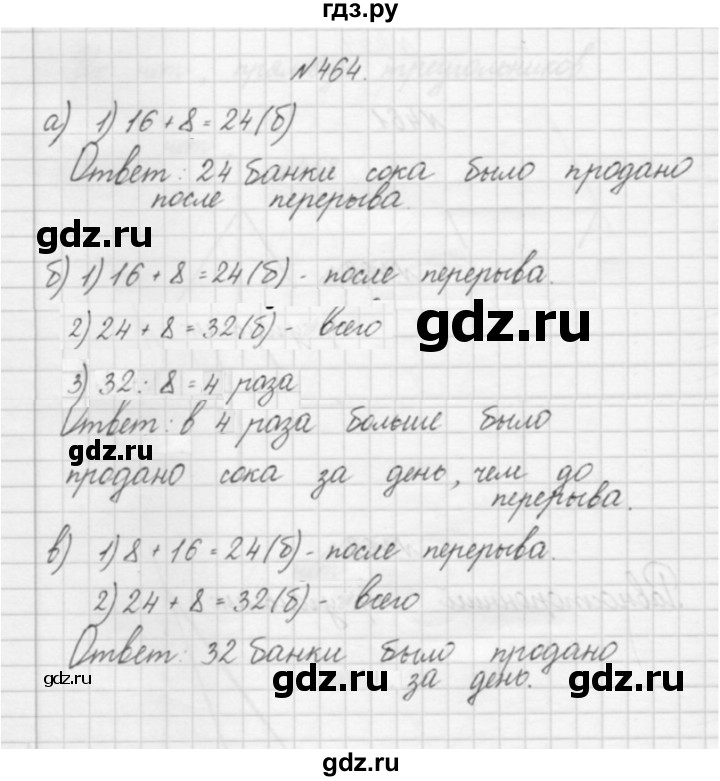 гдз.ру
№464.
а) 1) 16 + 8 = 24 (б)
Ответ: 24 банки сока было продано
после перерыва.
gdz.ru
б) 1) 16 + 8 = 24 (б) - после перерыва.
2) 24 + 8 = 32 (б) - всего
gdz.ru
3) 32 : 8 = 4 раза
Ответ: в 4 раза больше было
gdz.ru
продано сока за день, чем до
перерыва.
в) 1) 8 + 16 = 24 (б) - после перерыва.
2) 24 + 8 = 32 (б) - всего
Ответ: 32 банки было продано
за день.
gdz.ru
gdz.ru
gdz.ru
gdz.ru